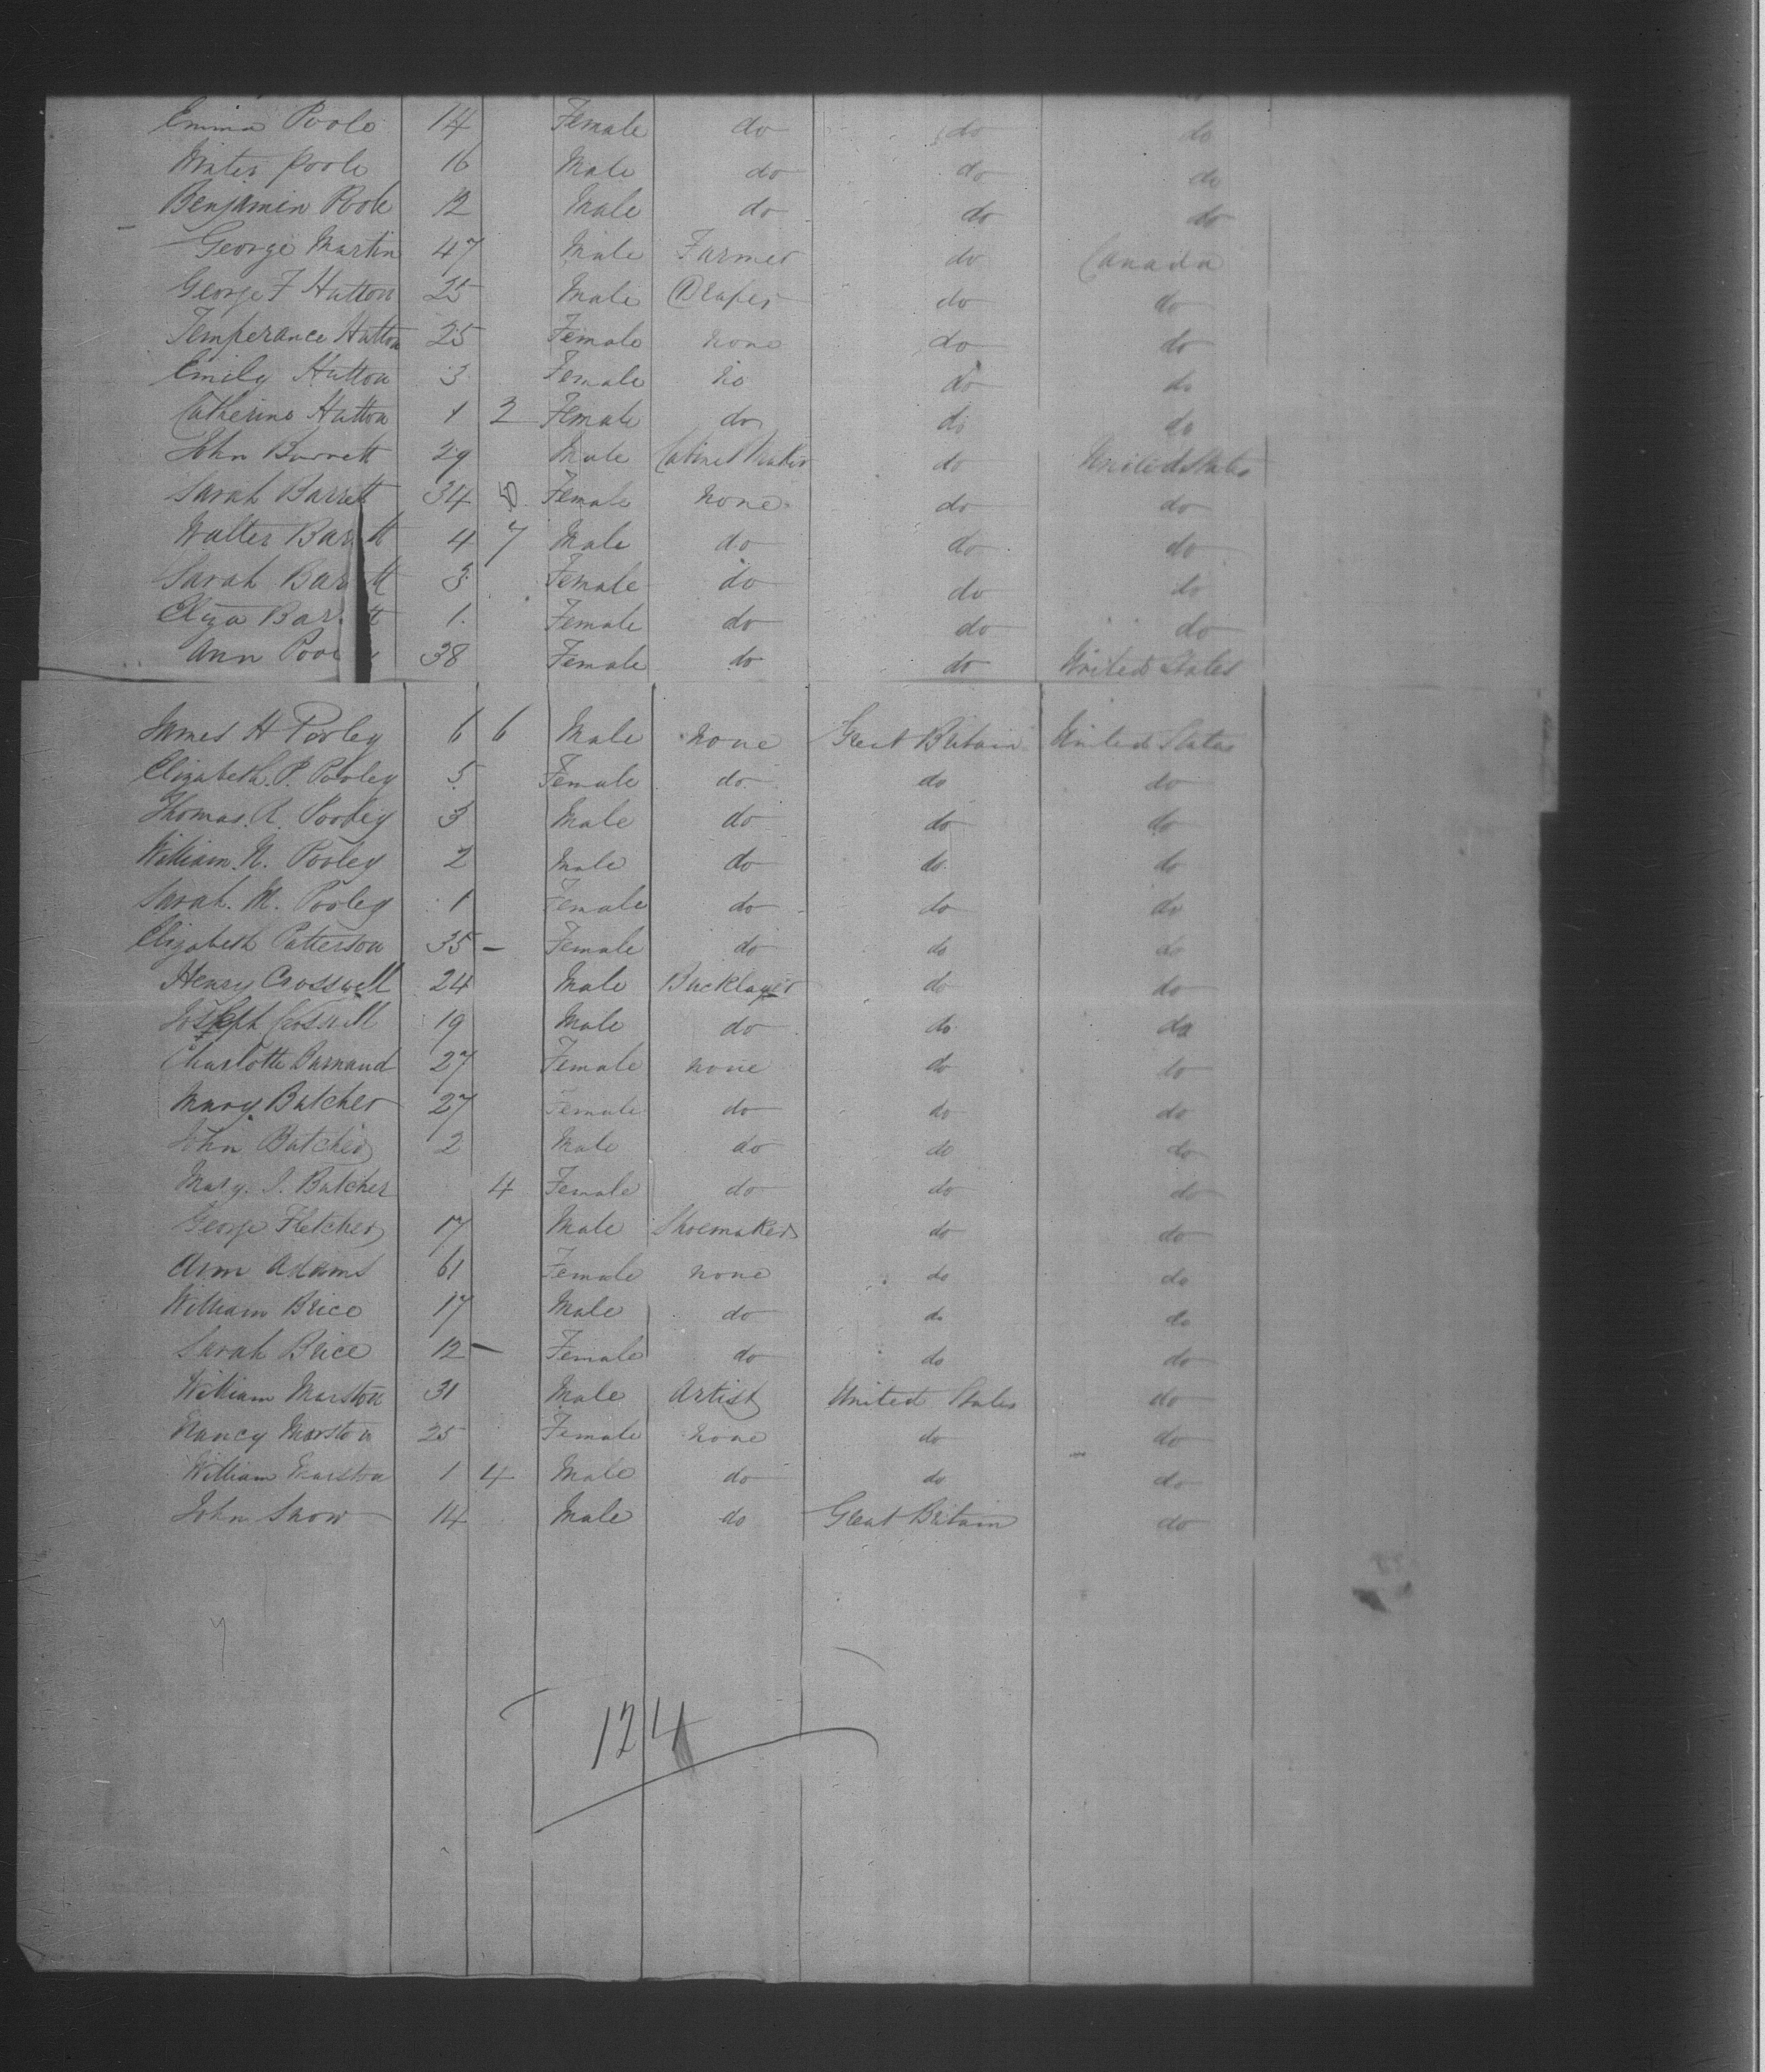 Emma Poole 14 Female do do do
Walter Poole 16 Male do do do
Benjamin Poole 12 Male do do do
George Martin 47 Male Farmer do Canada
George F Hutton 25 Male Draper do do
Temperance Hutton 25 Female none do do
Emily Hutton 3 Female no do do
Catherine Hutton 1 2 Female do do do
John Barrett 29 Male Cabinet Maker do United States
Sarah Barrett 34 Female none do do
Walter Bar tt 4 7 Male do do do
Sarah Bar tt 3 Female do do do
Eliza Bar t 1 Female do do do
Ann Poole 38 Female do do United States
James H Pooley 6 6 Male none Great Britain United States
Elizabeth. P. Pooley 5 Female do do do
Thomas. R. Pooley 3 Male do do do
William. N. Pooley 2 Male do do do
Sarah. M. Pooley 1 Female do do do
Elizabeth Patterson 35 - Female do do do
Henry Crosswell 24 Male Bricklayer do do
Joseph Crosswell 19 Male do do do
Charlotte Barnaud 27 Female none do do
Mary Butcher 27 Female do do do
John Butcher 2 Male do do do
Mary. J. Butcher 4 Female do do do
George Fletcher 17 Male Shoemaker do do
Ann Adams 61 Female none do do
William Brice 17 Male do do do
Sarah Brice 12 - Female do do do
William Marston 31 Male Artist United States do
Nancy Marston 25 Female none do do
William Marston 1 4 Male do do do
John Snow 14 Male do Great Britain do
124